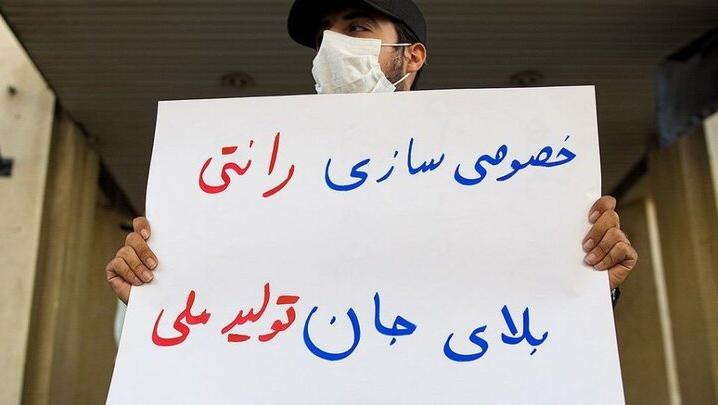 خصوصی سازی رانتی
بلای جان تولید ملی